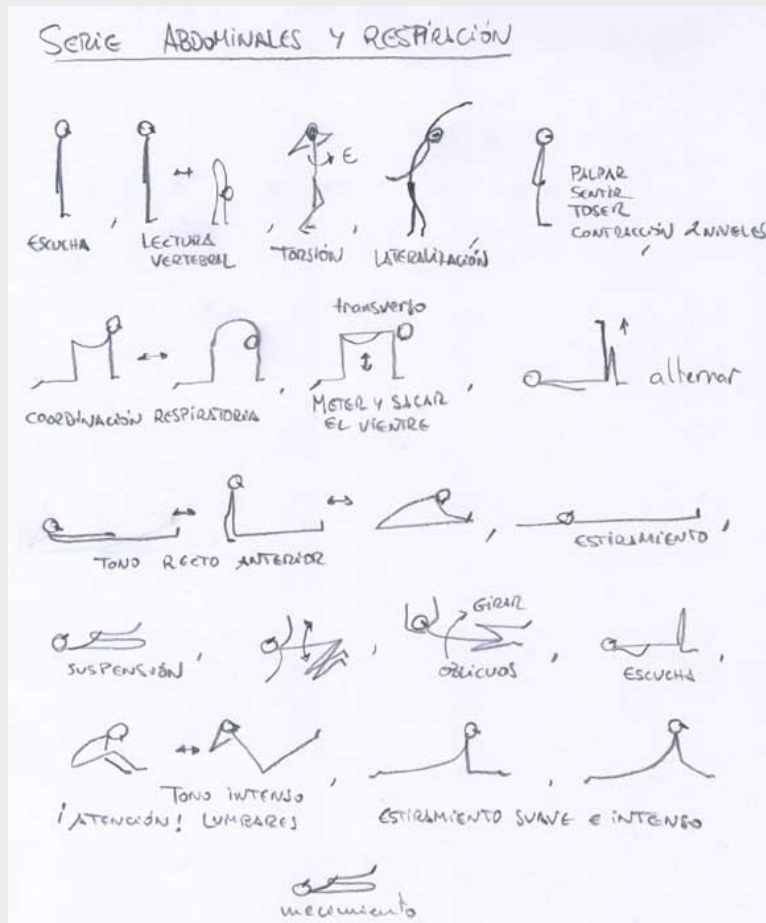 SERIE ABDOMINALES Y RESPIRACIÓN
ESCUCHA,
LECTURA
VERTEBRAL,
E
TORSIÓN,
LATERALIZACIÓN,
PALPAR
SENTIR
TOSER
CONTRACCIÓN 2 NIVELES,
COORDINACIÓN RESPIRATORIA,
transverso
METER Y SACAR
EL VIENTRE,
alternar
TONO RECTO ANTERIOR,
ESTIRAMIENTO,
SUSPENSIÓN,
GIRAR
OBLICUOS,
ESCUCHA,
TONO INTENSO,
¡ATENCIÓN! LUMBARES
ESTIRAMIENTO SUAVE E INTENSO
mecimiento